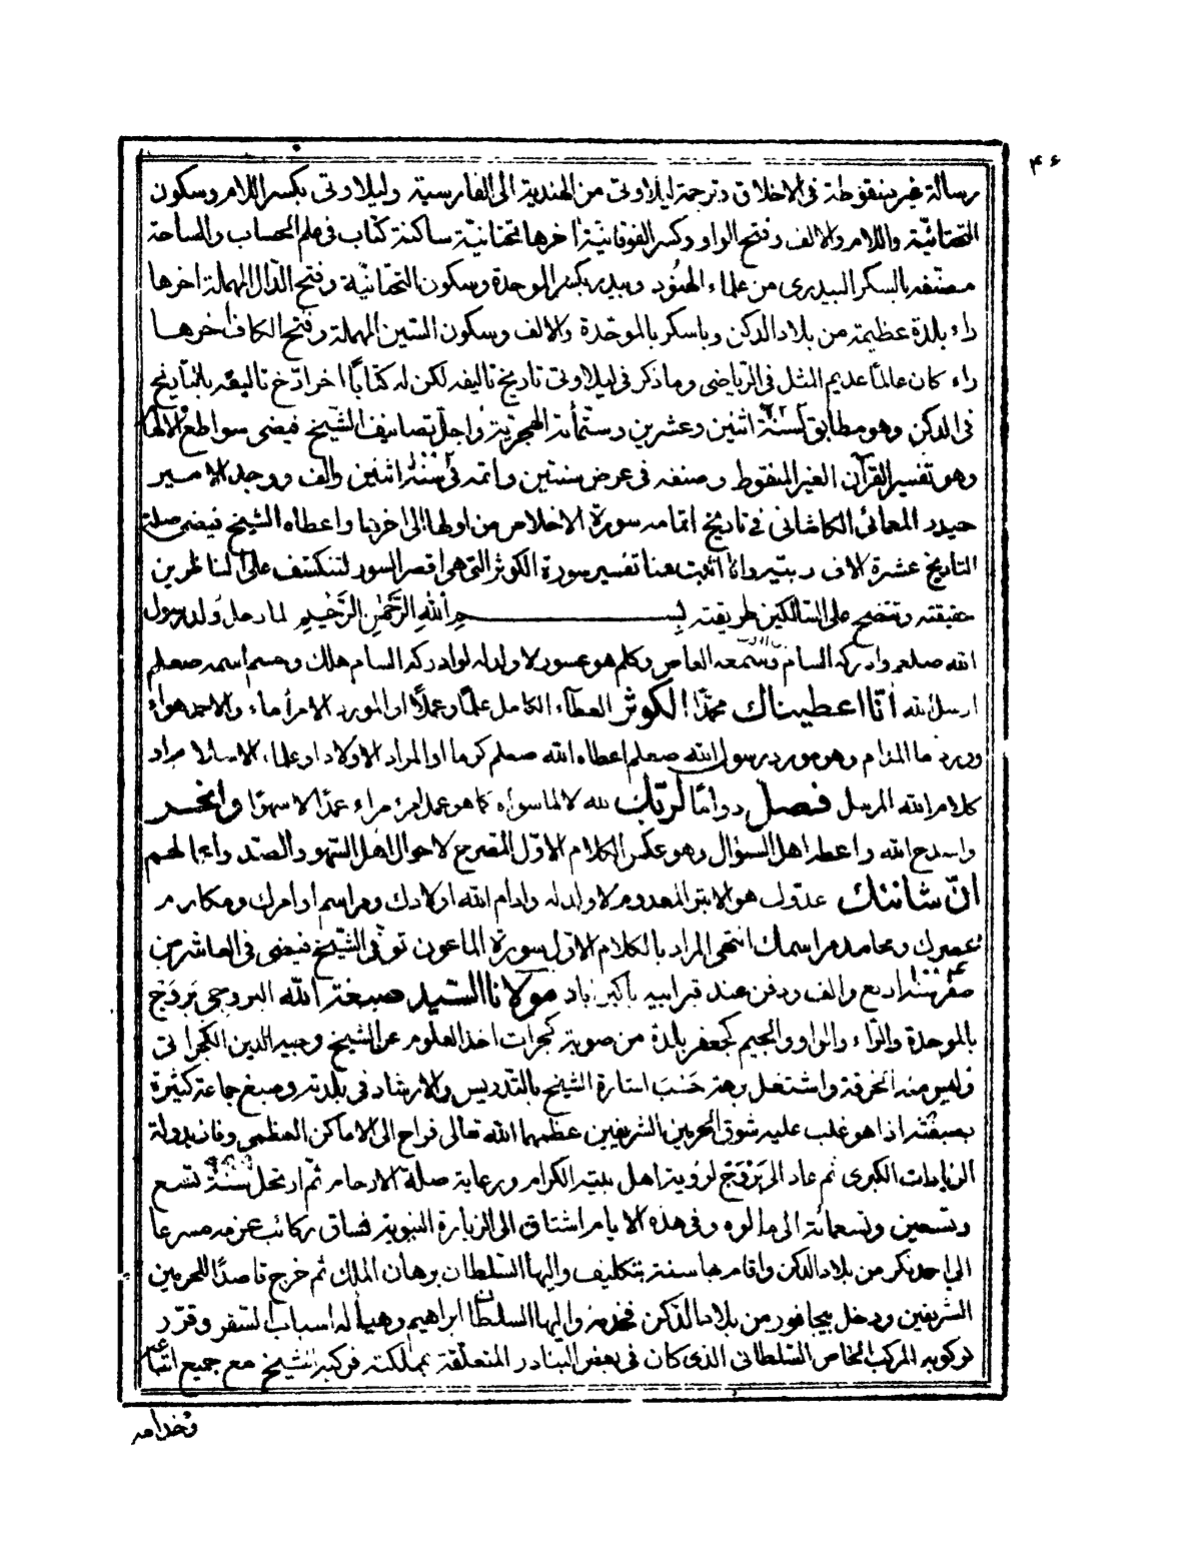 ۴۶
رسالة غير منقوطة فى الاخلاق وترجمة ليلاوتى من الهندية الى الفارسية وليلاوتى بكسر اللام وسكون
التحتانيّة واللام والالف وفتح الواو وكسر الفوقانيّة اخرها تحتانيّة ساكنة كتاب فى علم الحساب والمساحة
مصنّفه باسكر البيدرى من علماء الهنود وبيدر بكسر الموحدة وسكون التحتانيّة وفتح الدال المهملة اخرها
راء بلدة عظيمة من بلاد الدكن وباسكر بالموحّدة والالف وسكون السّين المهملة وفتح الكاف اخرها
راء كان عالمًا عديم المثل فى الرياضى وما ذكر فى ليلاوتى تاريخ تاليفه لكن له كتابًا اخر ارّخ تاليفه بالتاريخ
فى الدكن وهو مطابق لسنة اثنين وعشرين وستمأنة الهجرية واجلّ تصانيف الشيخ فيضى سواطع الالهام
وهو تفسير القرآن الغير المنقوط وصنفه فى عرض سنتين واتمه فى سنة اثنين والف ووجد الامير
حيدر المعمائى الكاشانى فى تاريخ اتمامه سورة الاخلاص من اولها الى اخرها واعطاه الشيخ فيضى صلة
التاريخ عشرة الاف ربية وانا اثبت هنا تفسير سورة الكوثر التى هى اقصر السور لتنكشف على الناظرين
حقيقته وتتضح على السالكين طريقته بِسـمِ اللهِ الرَّحْمٰنِ الرَّحِيْمِ لما رحل ولد رسول
الله صلعم وادركه السام وسمعه العاص وكلم هو عسور لا ولد له لو ادركه السام هلك وحسم اسمه صلعم
ارسل الله انّا اعطيناك محمدًا الكوثر العطاء الكامل علمًا وعملًا او المورد الامرأ ماء والاحمد هواء
وورد ما المرام وهو مورد رسول الله صلعم اعطاه الله صلعم كرما او المراد الاولاد او علماء الاسلام او
كلام الله المرسل فصلّ دوامًا لربّك لله لا لما سواه كما هو عمل امرء مراء عمدًا لا سهوًا وانحر
واسدح الله واعط اهل السؤال وهو عكس الكلام الاوّل المصرح لاحوال اهل السهو والصد واعمالهم
انّ شانئك عدوّك هو الابتر المعدوم لا ولد له وادام الله اولادك ومراسم اوامرك ومكارم
عصرك ومحامد مراسمك انتهى المراد بالكلام الاوّل سورة الماعون توفى الشيخ فيضى فى العاشر من
صفر سنة اربع والف ودفن عند قبر ابيه باكبراباد مولانا السّيد صبغة الله البروجى بَروَج
بالموحدة والرّاء والواو والجيم كجعفر بلدة من صوبة كجرات اخذ العلوم عن الشيخ وجيه الدين الكجراتى
ولبس منه الخرقة واشتغل برهة حسب اشارة الشيخ بالتدريس والارشاد فى بلدته وصبغ جماعة كثيرة
بصبغته اذا هو غلب عليه شوق الحرمين الشريفين عظمهما الله تعالى فراح الى الاماكن العظمى وفاز بدولة
الزيارات الكبرى ثم عاد الى بَروَج لرؤية اهل بيته الكرام ورعاية صلة الارحام ثم ارتحل سنة ٩٩٩ تسع
وتسعين وتسعمائة الى مالوه وفى هذه الايام اشتاق الى الزيارة النبوية فساق ركائب عزمه مسرعا
الى احمدنكر من بلاد الدكن واقام بها سنة بتكليف واليها السلطان برهان الملك ثم خرج قاصدًا للحرمين
الشريفين ودخل بيجافور من بلاد الدكن فخدمه واليها السلطان ابراهيم وهيأ له اسباب السفر وقرّر
لركوبه المركب الخاص السّلطانى الذى كان فى بعض البنادر المتعلّقة بمملكته فركبه الشيخ مع جميع اتباعه
وخدامه